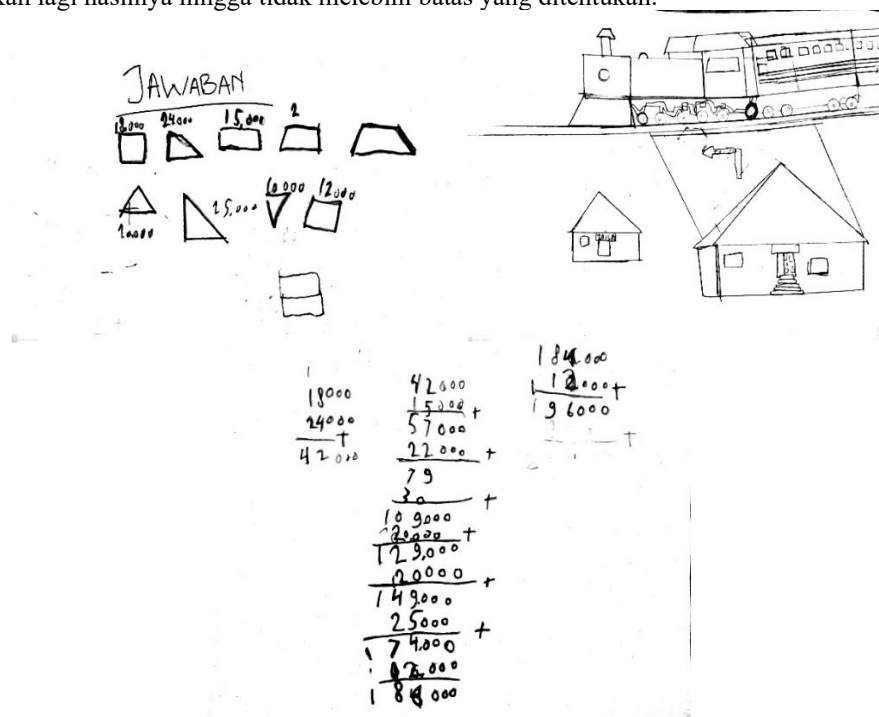 kan lagi hasilnya hingga tidak melebihi batas yang ditentukan.
JAWABAN
18.000 24000 15,000 2
20000 25,000 10000 12000
18000
24000
+
42000
42000
15000 +
57000
22000 +
79
30 +
109000
20.000 +
129,000
20000 +
149.000
25000 +
174.000
000
000
000
000 +
196000
+